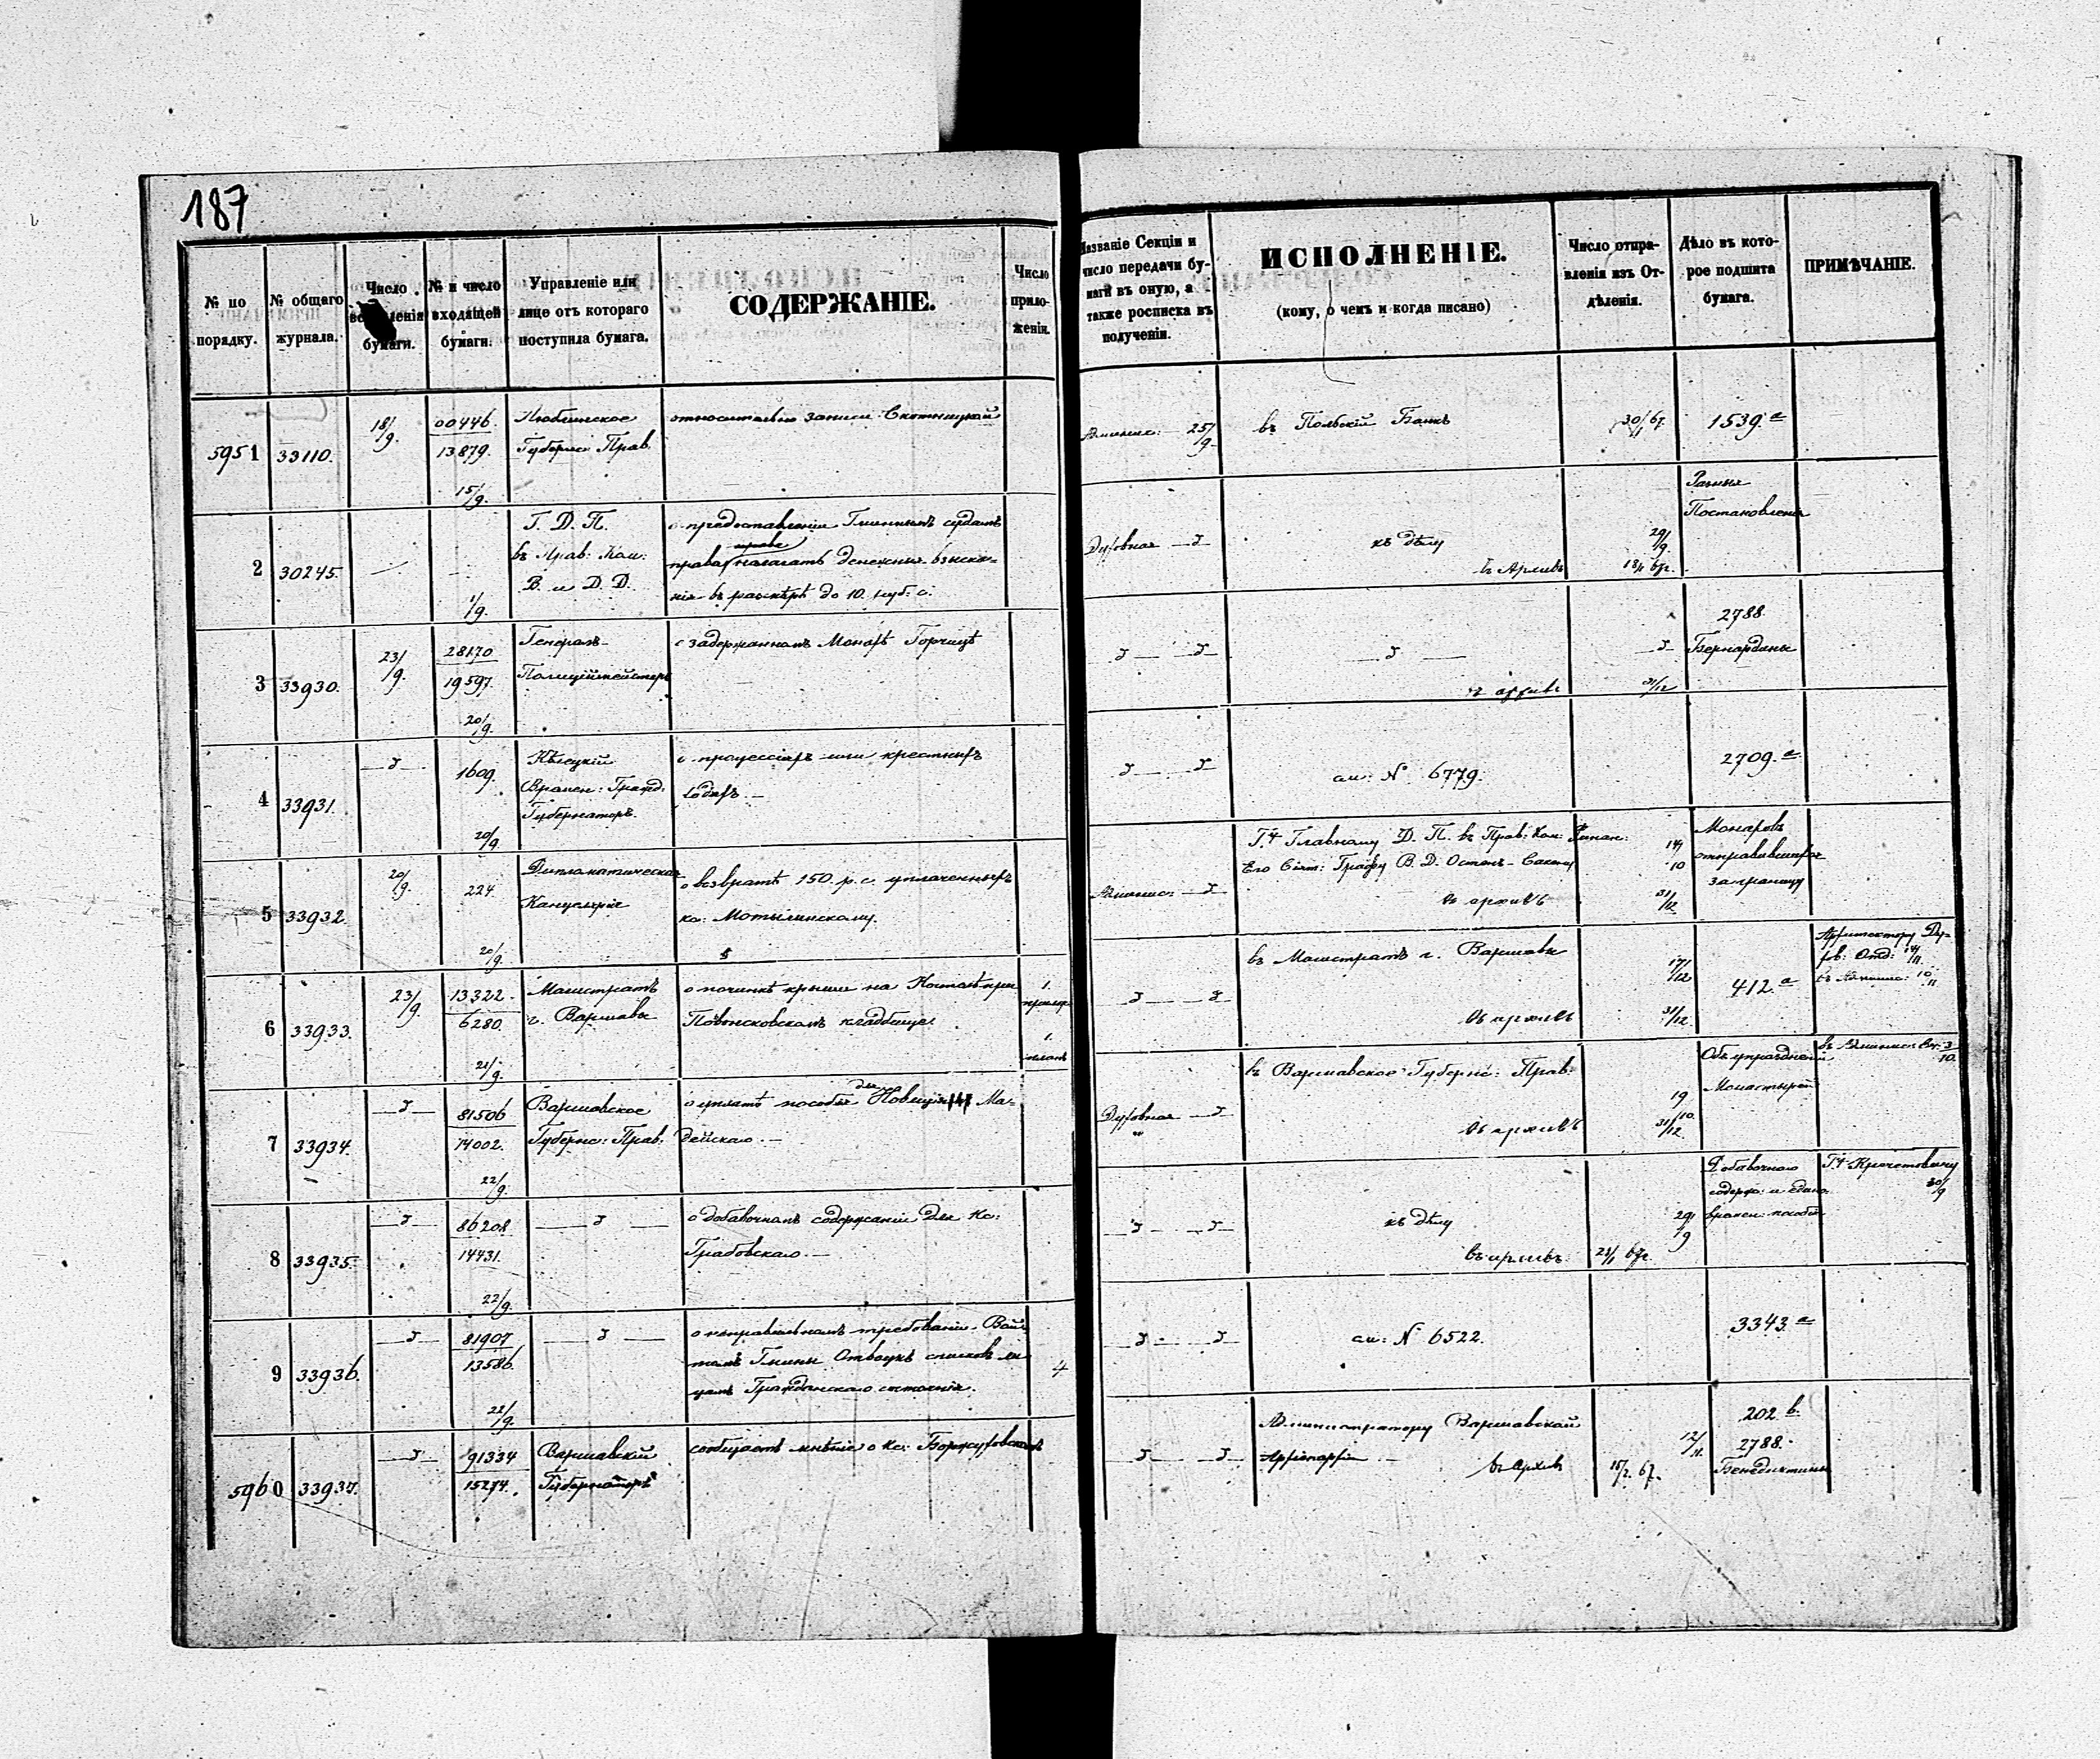 187
№ по порядку.
№ общаго журнала.
Число вступленія бумаги.
№ и число входящей бумаги.
Управленіе или лице отъ котораго поступила бумага.
СОДЕРЖАНІЕ.
Число приложенія.
Названіе Секціи и число передачи бумаги въ оную, а также росписка въ полученіи.
ИСПОЛНЕНІЕ.
(кому, о чемъ и когда писано)
Число отправленія изъ Отдѣленія.
Дѣло въ которое подшита бумага.
ПРИМѢЧАНІЕ.
5951
33110.
18/9.
00446.
13879.
15/9.
Люблинское
Губернс. Прав.
относительно записи
25/9.
въ Польскій Банкъ
30/1 67.
1539. а
2
30245.
1/9.
Г. Д. П.
въ Прав: Ком:
В. и Д. Д.
о предоставленіи Гминнымъ судамъ
права налагать денежныя взыска-
нія въ размѣрѣ до 10. руб. с.
Духовная
къ дѣлу
въ Архивъ
29/9.
Разныя
Постановленія
3
33930.
23/9.
28170
19597.
20/9.
Генералъ-
Полиціймейстеръ
о задержанномъ Монахѣ Горчицѣ
въ архивъ
31/12
2788.
Бернардины
4
33931.
1609.
20/9.
Кѣлецкій
Времен: Гражд:
Губернаторъ.
о процессіяхъ или крестныхъ
ходахъ.
ad: № 6779.
2709. а
5
33932.
20/9.
224.
20/9.
Дипломатическая
Канцелярія
о возвратѣ 150. р. с. уплаченныхъ
кс: Мотылинскому.
Г. Главному Д. П. въ Прав: Ком: Финан:
Его Сіят: Графу В. Д. Остенъ-Сакену
въ архивъ
31/12.
Монаховъ
отправившихся
заграницу
6
33933.
23/9.
13322.
6280.
21/9.
Магистратъ
г. Варшавы
о починкѣ крыши на Костелѣ при
Повонсковскомъ кладбищѣ.
1.
1.
планъ
въ Магистратъ г. Варшавы
въ архивъ
17/12
31/12.
412. а
Архитектору Ду-
хов: Отд:
7
33934.
81506
14002.
22/9.
Варшавское
Губернс: Прав:
о уплатѣ пособія для Новиція Ма-
дейскаго.
Духовная
въ Варшавское Губернс: Прав:
въ архивъ
19/10.
31/12.
Объ упраздненіи
Монастырей
8
33935.
86208
14431.
22/9.
о добавочномъ содержаніи для Кс:
Грабовскаго.
къ дѣлу
въ архивъ.
29/9
Добавочнаго
содерж: и едино-
времен: пособія
30/9
9
33936.
81907
13586.
22/9.
о неправильномъ требованіи Вой-
томъ Гмины Отвоцкъ списковъ ли-
цамъ Гражданскаго состоянія.
4
ad: № 6522.
3343. а
5960
33937.
91334
15274.
Варшавскій
Губернаторъ
сообщаетъ мнѣніе о Кс:
Администратору Варшавской
Архіепархіи
въ Архивъ
12/11.
202 b.
2788.
Бенедиктины